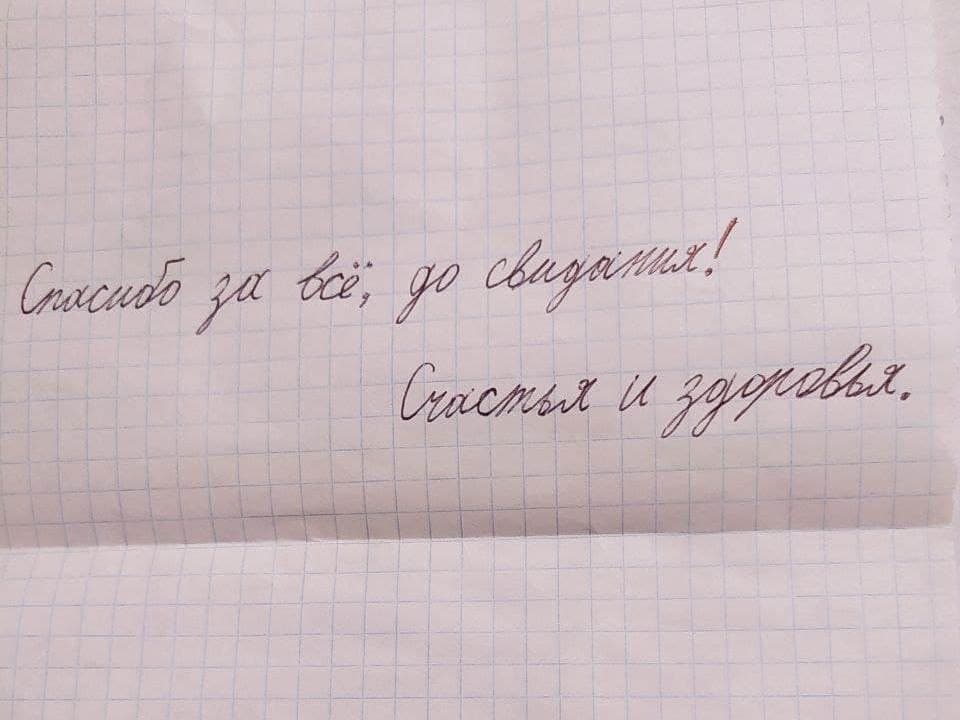 Спасибо за всё, до свидания!
Счастья и здоровья.